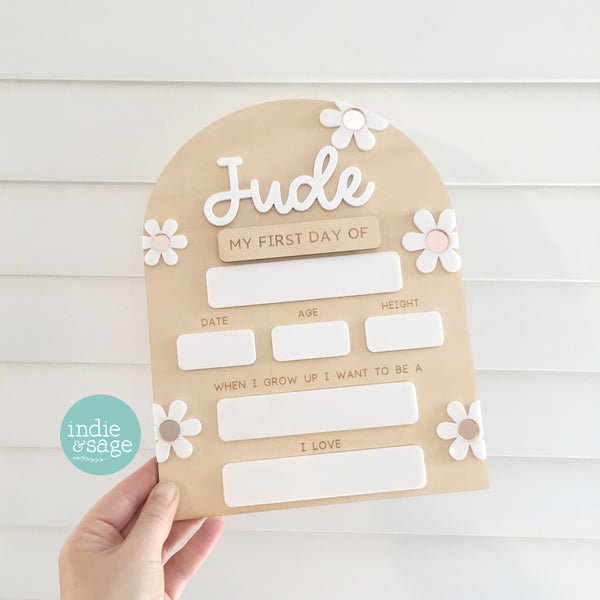 Jude
MY FIRST DAY OF
DATE
AGE
HEIGHT
WHEN I GROW UP I WANT TO BE A
I LOVE
indie
&sage